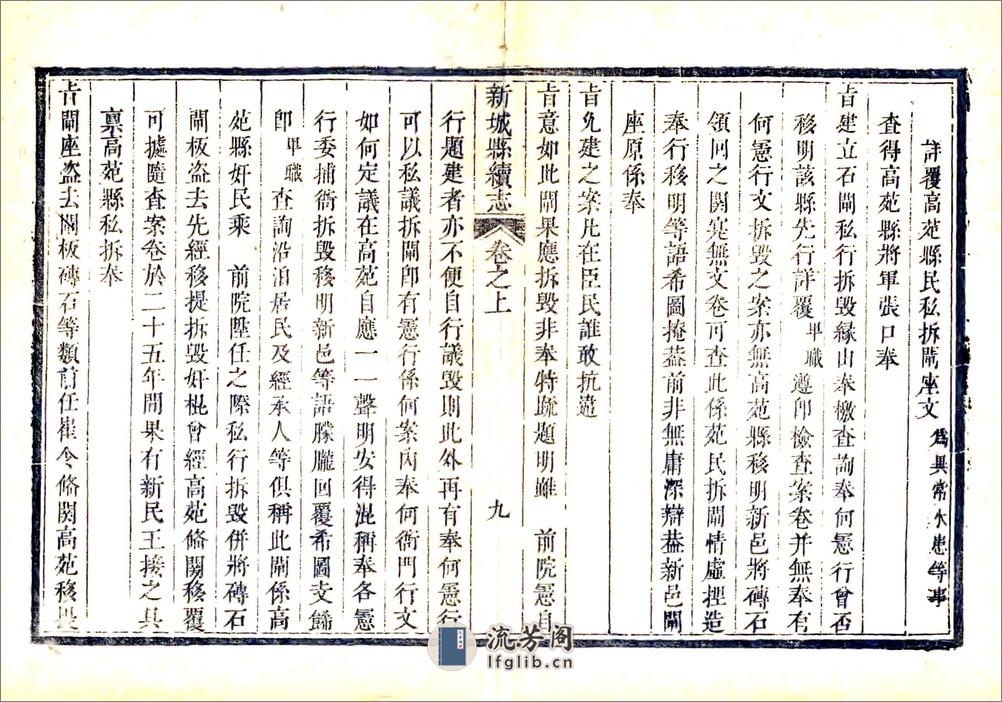 詳覆高苑縣民私拆閘座文 爲異常水患等事
查得高苑縣將軍張口奉
旨建立石閘私行拆毀緣由奉檄查詢奉何憲行曾否
移明該縣先行詳覆卑職遵卽檢查案卷并無奉有
何憲行文拆毀之案亦無高苑縣移明新邑將磚石
領回之関寔無文卷可查此係苑民拆閘情虛捏造
奉行移明等語希圖掩葢前非無庸深辯葢新邑閘
座原係奉
旨允建之案凡在臣民誰敢抗違
旨意如此閘果應拆毀非奉特疏題明雖 前院憲自
新城縣續志 卷之上 九
行題建者亦不便自行議毀則此外再有奉何憲行
可以私議拆閘卽有憲行係何案內奉何衙門行文
如何定議在高苑自應一一聲明安得混稱奉各憲
行委捕衙拆毀移明新邑等語朦朧回覆希圖支餙
卽卑職查詢沿泊居民及經承人等俱稱此閘係高
苑縣奸民乘 前院陞任之際私行拆毀併將磚石
閘板盜去先經移提拆毀奸棍曾經高苑俻關移覆
可據隨查案卷於二十五年間果有新民王接之具
禀高苑縣私拆奉
旨閘座盜去閘板磚石等類前任崔令俻関高苑移提
流芳阁
lfglib.cn